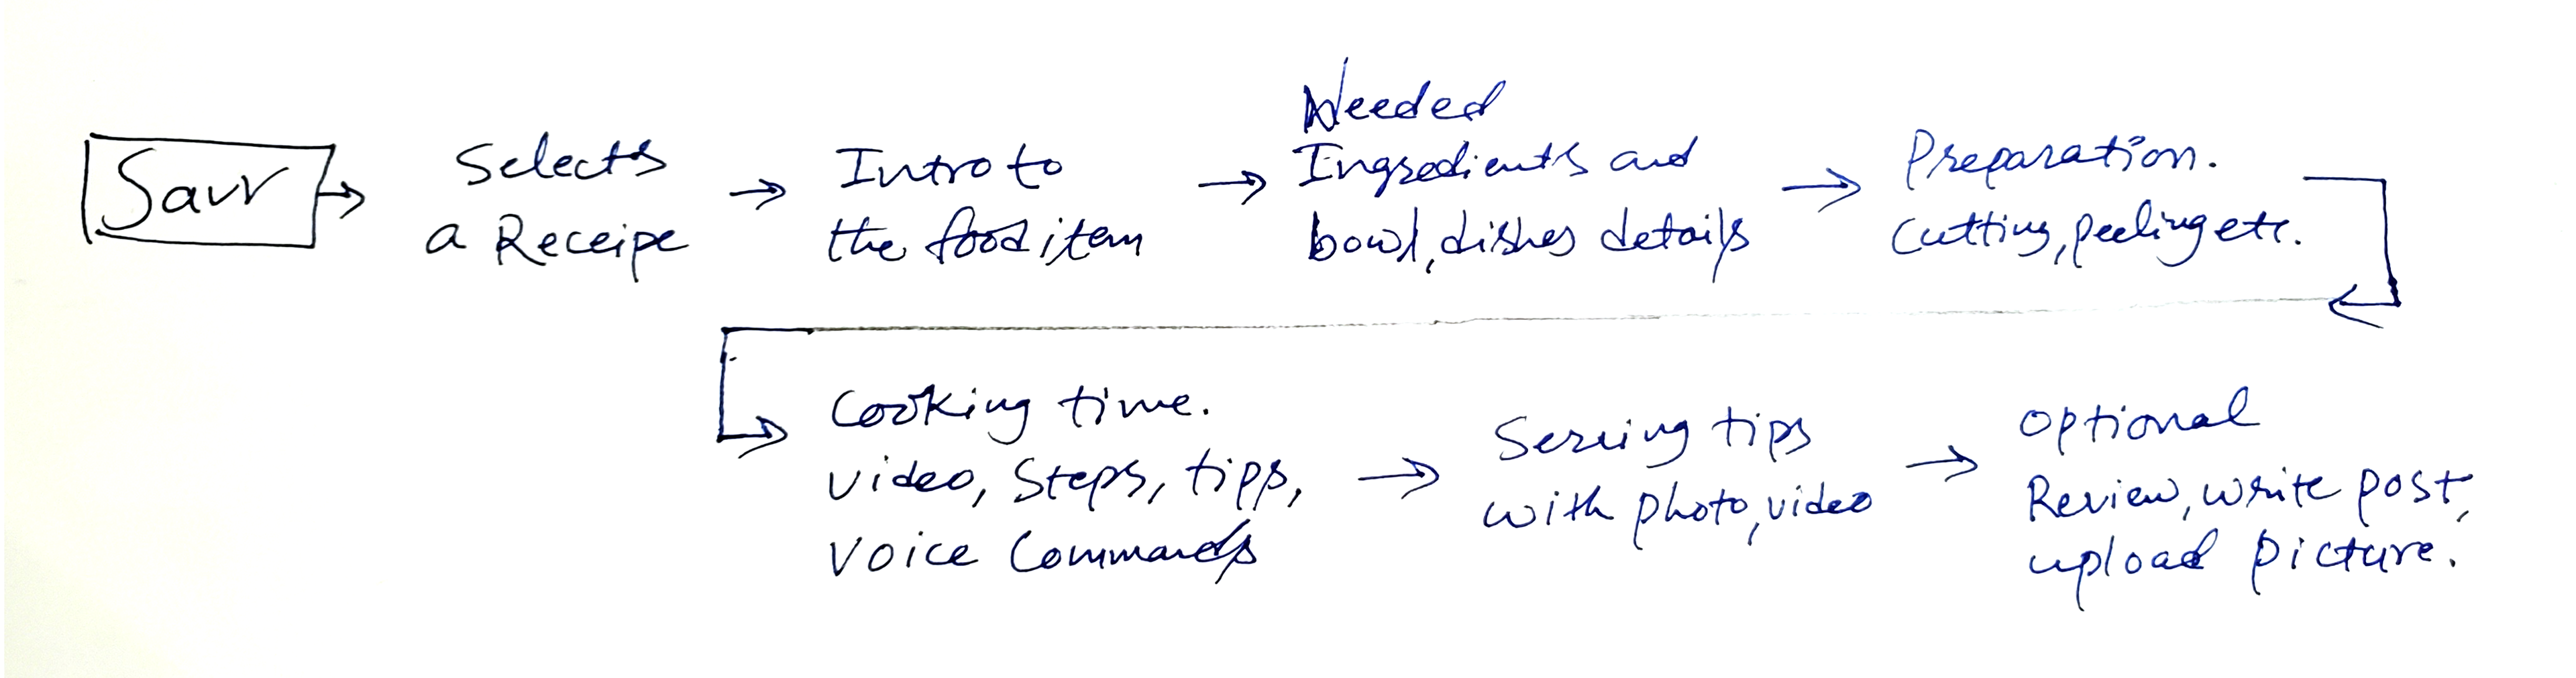 Savr
Selects
a Receipe
Intro to
the food item
Needed
Ingredients and
bowl, dishes details
Preparation.
Cutting, peeling etc.
Cooking time.
video, steps, tips,
voice Commands
Serving tips
with photo, video
Optional
Review, write post,
upload picture.